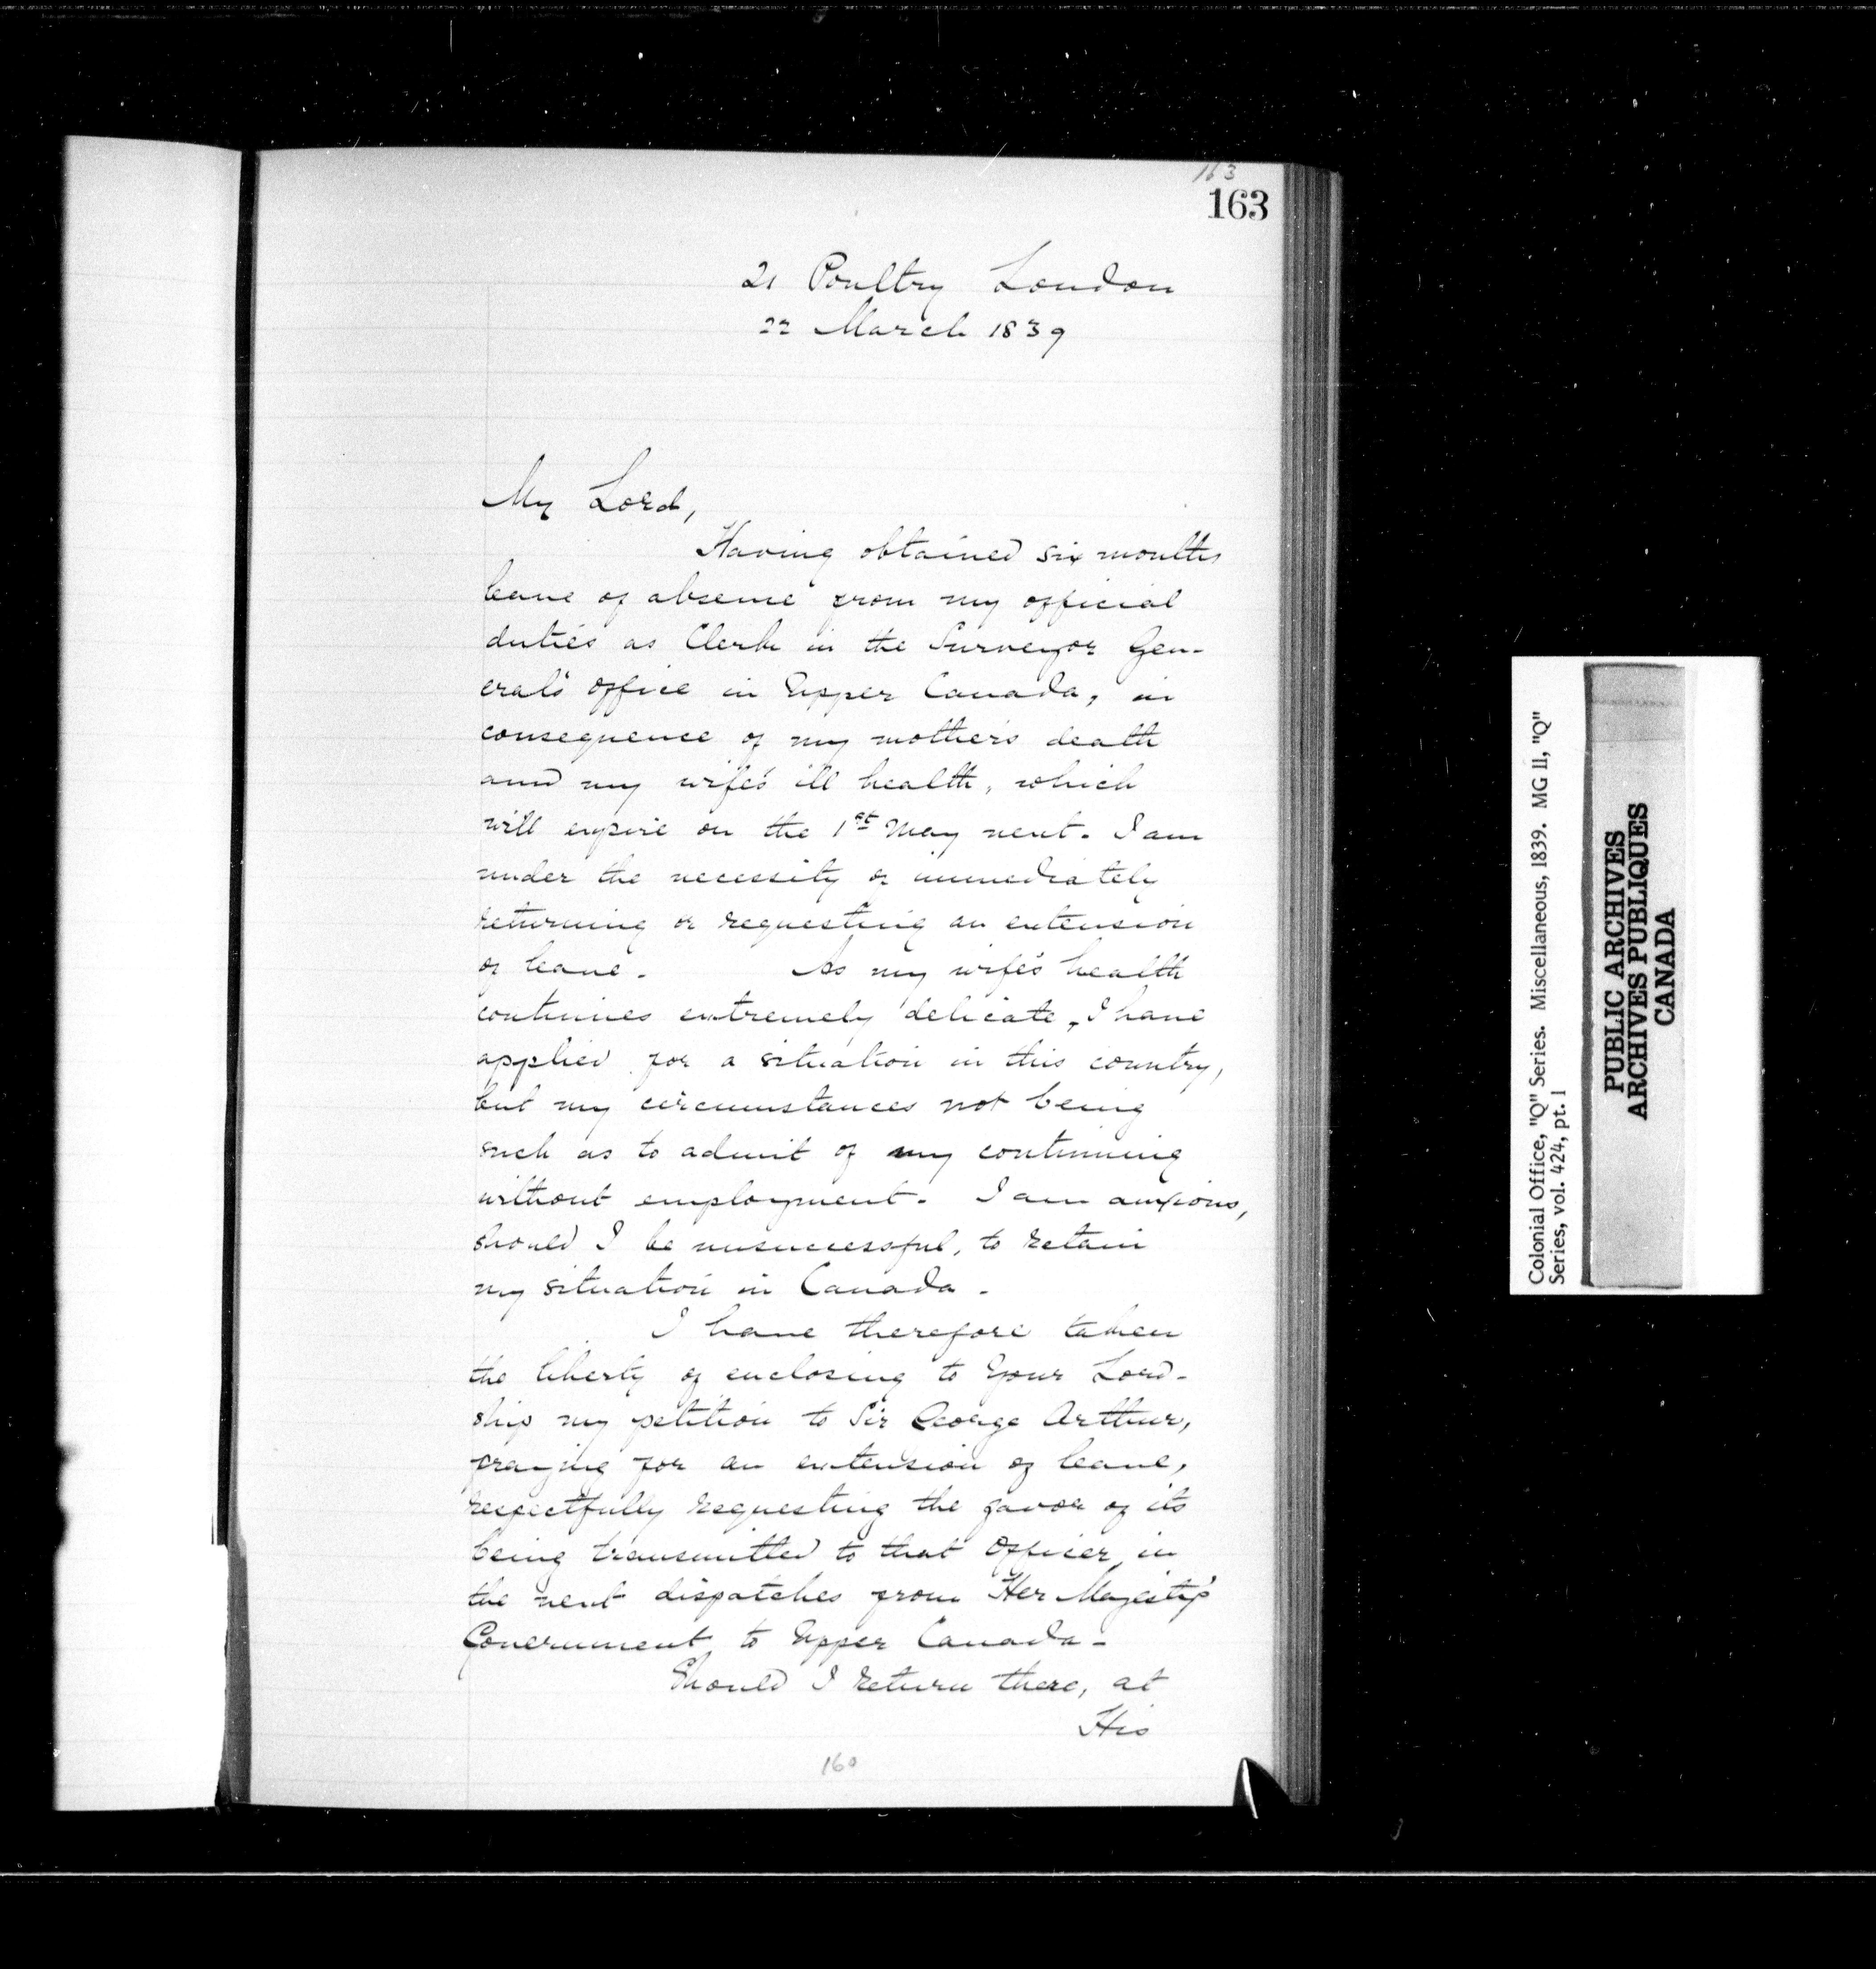 163
163
21 Poultry London
22 March 1839
My Lord,
Having obtained six months
leave of absence from my official
duties as Clerk in the Surveyor Gen-
eral's office in Upper Canada, in
consequence of my mother's death
and my wife's ill health, which
will expire on the 1st May next. I am
under the necessity of immediately
returning or requesting an extension
of leave. As my wife's health
continues extremely delicate, I have
applied for a situation in this country,
but my circumstances not being
such as to admit of my continuing
without employment. I am anxious,
should I be unsuccessful, to retain
my situation in Canada.
I have therefore taken
the liberty of enclosing to Your Lord-
ship my petition to Sir George Arthur,
praying for an extension of leave,
respectfully requesting the favor of its
being transmitted to that Officer, in
the next dispatches from Her Majesty's
Government to Upper Canada -
Should I return there, at
His
160
Colonial Office, "Q" Series. Miscellaneous, 1839. MG 11, "Q"
Series, vol. 424, pt. 1
PUBLIC ARCHIVES
ARCHIVES PUBLIQUES
CANADA